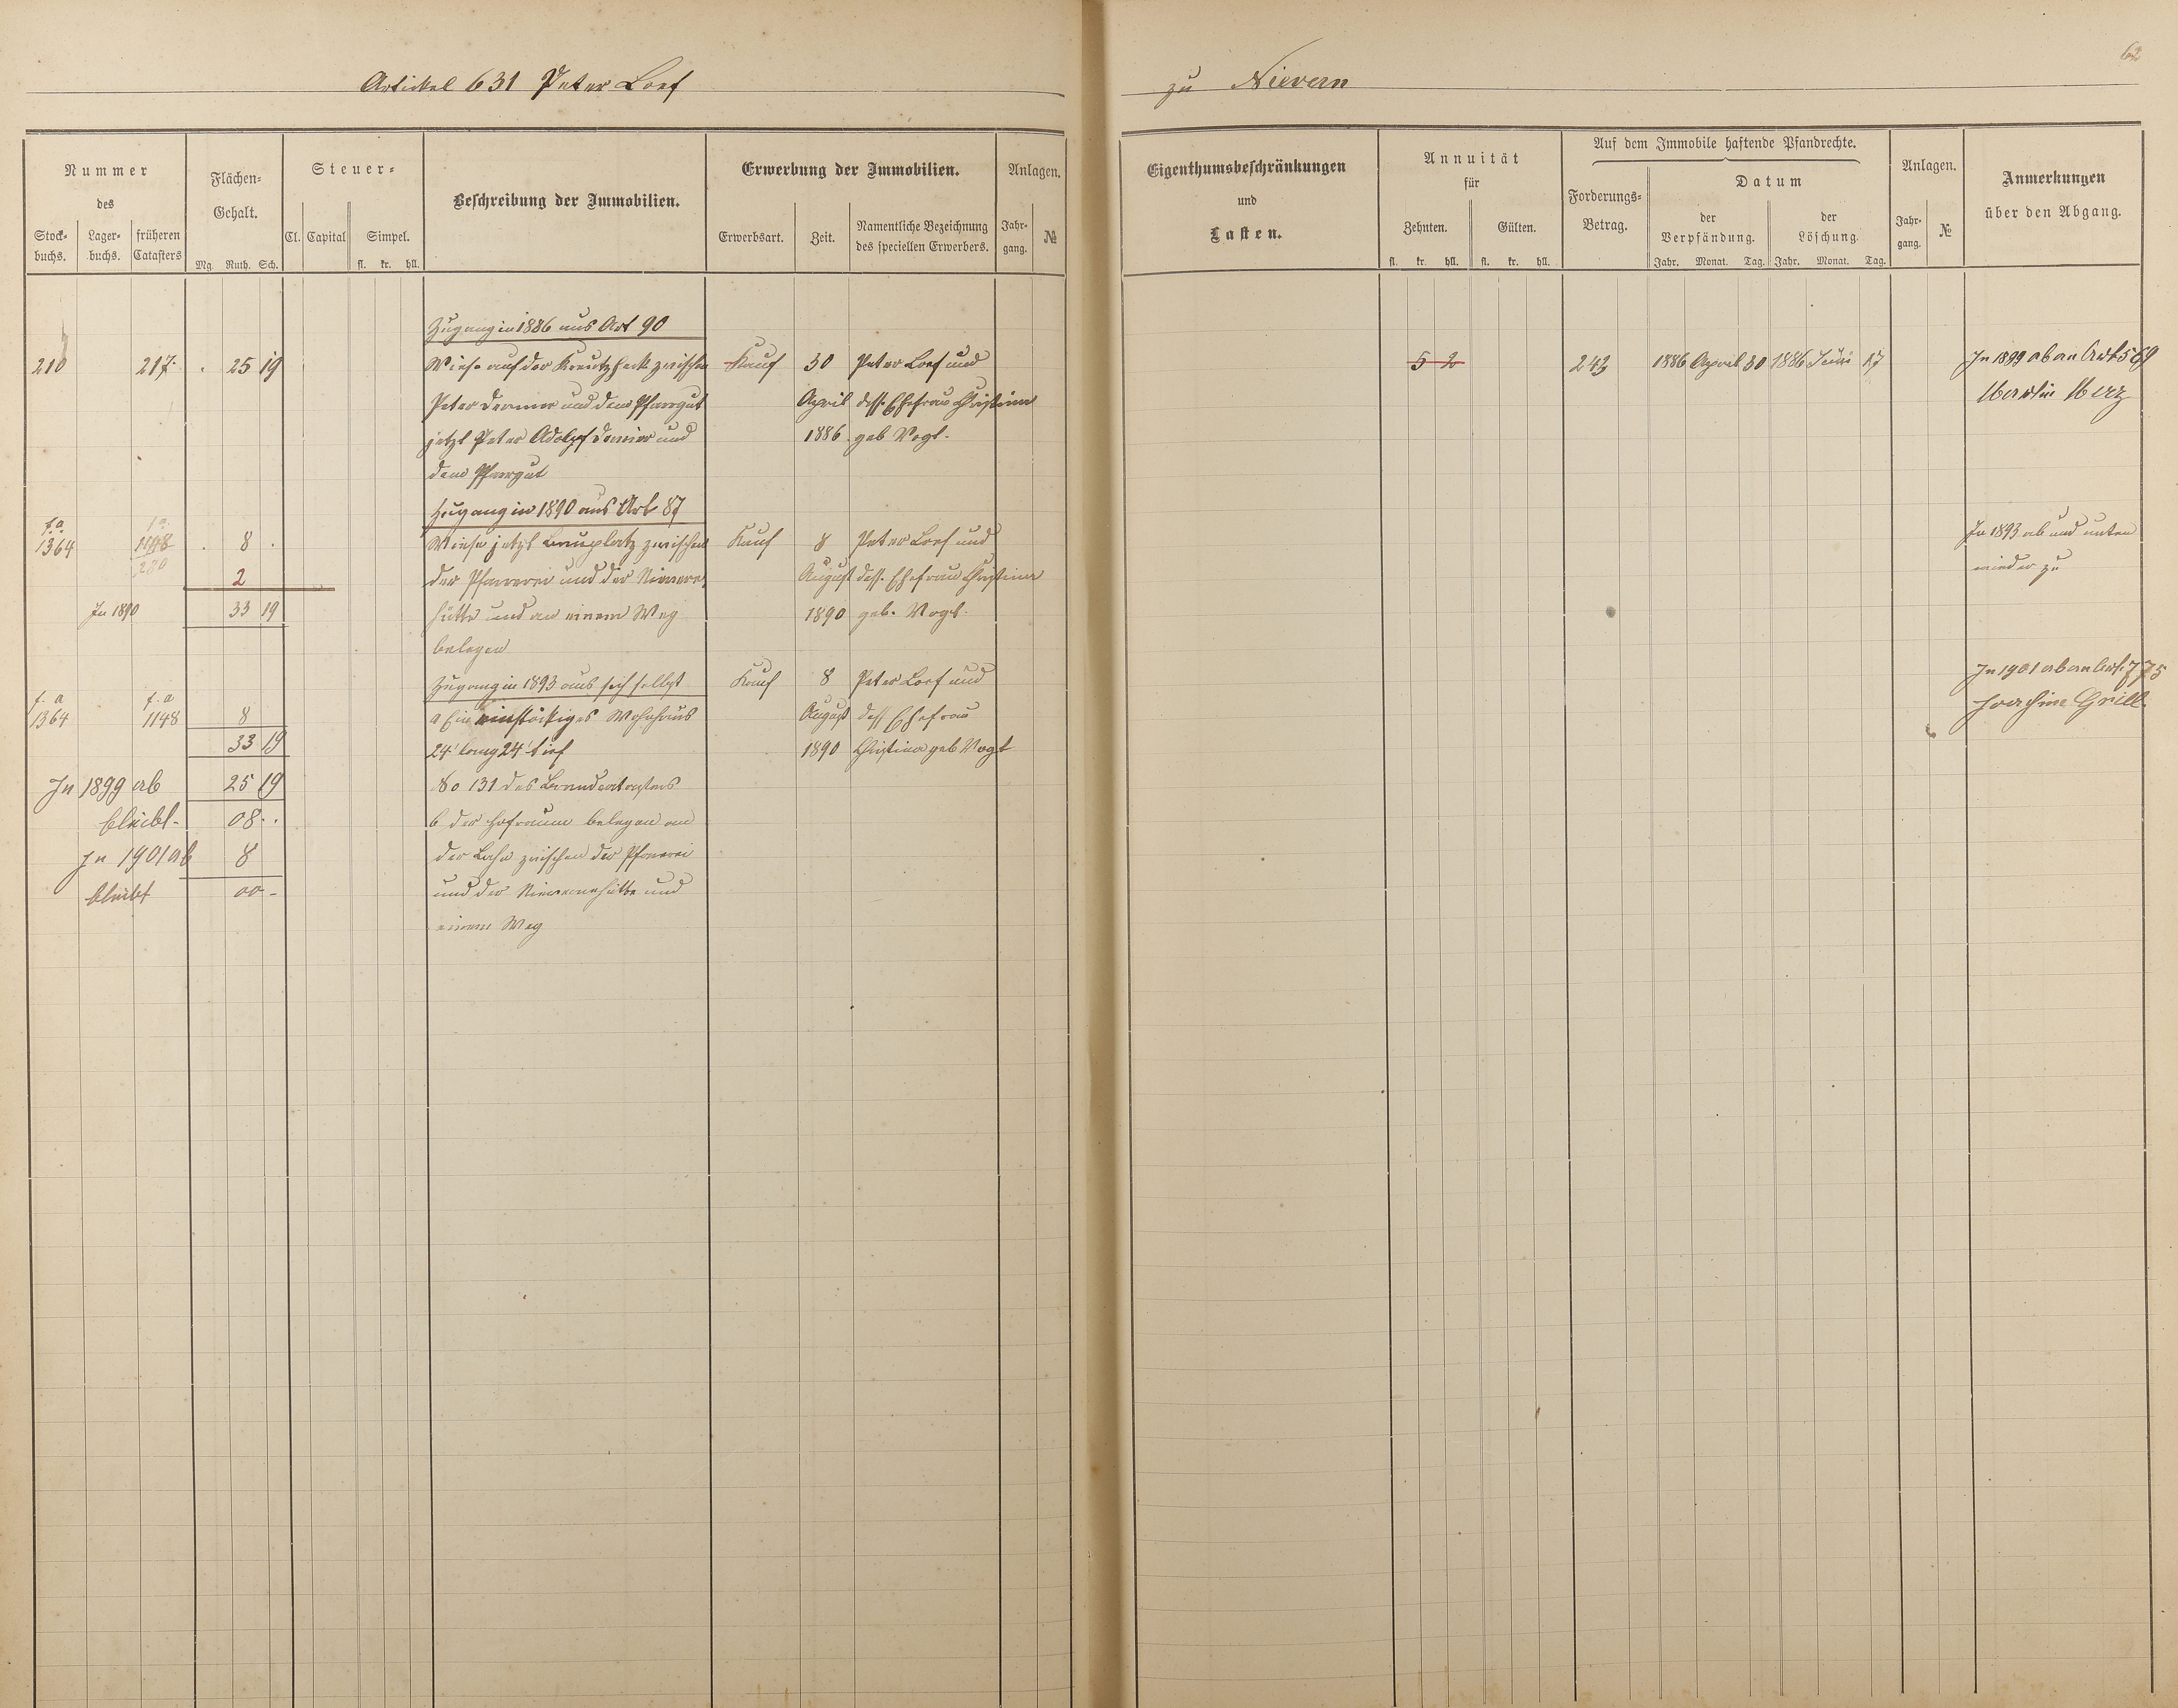 Artikel 631 Peter Loef
zu Nievern
62
Nummer
des
Stock-
buchs.
Lager-
buchs.
früheren
Catasters
Flächen-
Gehalt.
Mg. Ruth. Sch.
Steuer-
Cl. Capital Simpel.
fl. kr. hll.
Beschreibung der Immobilien.
Erwerbung der Immobilien.
Erwerbsart. Zeit. Namentliche Bezeichnung
des speciellen Erwerbers.
Anlagen.
Jahr-
gang.
№
Zugang in 1886 aus Art 90
210 217. . 25 19 Wiese auf der Kreutzheck zwischen Kauf 30 Peter Loef und
Peter und dem Pfarrgut April dess. Ehefrau Christina
jetzt Peter Adolph und 1886 geb Vogt.
dem Pfarrgut
Zugang in 1890 aus Art. 87
f. a
1364 1148 . 8 . Wiese jetzt Bauplatz zwischen Kauf 8 Peter Loef und
280 2 der Pfarrerei und der Nieverner August dess. Ehefrau Christina
In 1890 33 19 hütte und an einem Weg 1890 geb. Vogt.
belegen
Zugang in 1893 aus sich selbst Kauf 8 Peter Loef und
f. a f. a
1364 1148 8 a Ein einstöckiges Wohnhaus August dess Ehefrau
33 19 24' lang 24' tief 1890 Christina geb Vogt
In 1899 ab 25 19 No 131 des Brandcatasters
bleibt. 08.. b der Hofraum belegen an
In 1901 ab 8 der Lahn zwischen der Pfarrerei
bleibt 00 - und der Nievernerhütte und
einem Weg
Eigenthumsbeschränkungen
und
Lasten.
Annuität
für
Zehnten. Gülten.
fl. kr. hll. fl. kr. hll.
Auf dem Immobile haftende Pfandrechte.
Forderungs-
Betrag.
Datum
der
Verpfändung.
der
Löschung.
Jahr. Monat. Tag. Jahr. Monat. Tag.
Anlagen.
Jahr-
gang.
№
Anmerkungen
über den Abgang.
5 2 243 1886 April 30 1886 Juni 17 In 1899 ab an Art 569
Martin Merz
In 1893 ab und unten
wieder zu
In 1901 ab an Art. 775
Joachim Grill.